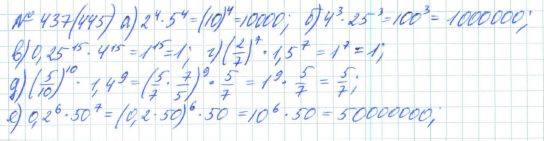 № 437(445) а) 2⁴·5⁴=(10)⁴=10000; б) 4³·25³=100³=1000000;
в) 0,25¹⁵·4¹⁵=1¹⁵=1; г) (2/7)⁷·1,5⁷=1⁷=1;
д) (5/10)¹⁰·1,4⁹=(5/7·7/5)⁹·5/7=1⁹·5/7=5/7;
е) 0,2⁶·50⁷=(0,2·50)⁶·50=10⁶·50=50000000;